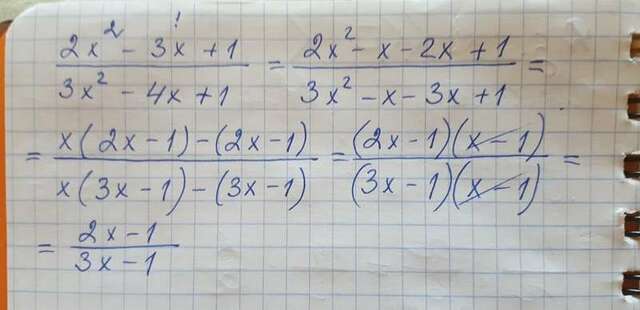 (2x² - 3x + 1)/(3x² - 4x + 1) = (2x² - x - 2x + 1)/(3x² - x - 3x + 1) =
= (x(2x - 1) - (2x - 1))/(x(3x - 1) - (3x - 1)) = ((2x - 1)(x - 1))/((3x - 1)(x - 1)) =
= (2x - 1)/(3x - 1)